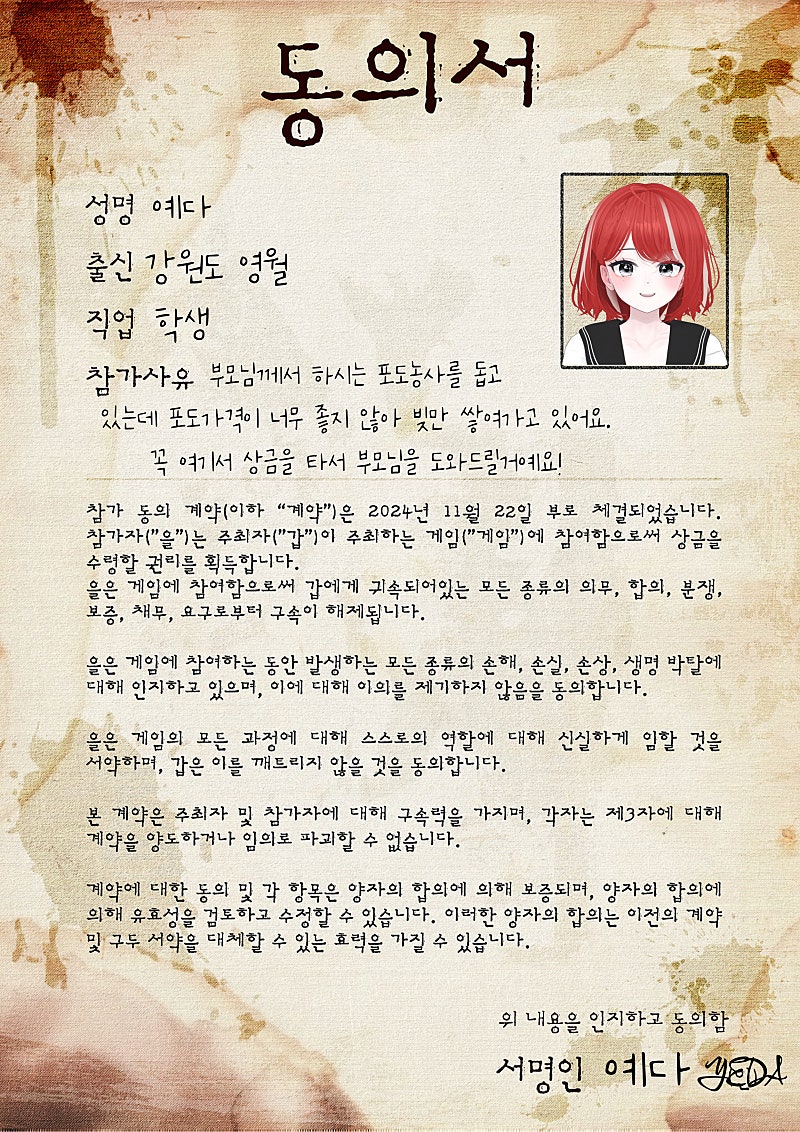 동의서
성명 예다
출신 강원도 영월
직업 학생
참가사유 부모님께서 하시는 포도농사를 돕고
있는데 포도가격이 너무 좋지 않아 빚만 쌓여가고 있어요.
꼭 여기서 상금을 타서 부모님을 도와드릴거예요!
참가 동의 계약(이하 “계약”)은 2024년 11월 22일 부로 체결되었습니다.
참가자(”을”)는 주최자(”갑”)이 주최하는 게임(”게임”)에 참여함으로써 상금을
수령할 권리를 획득합니다.
을은 게임에 참여함으로써 갑에게 귀속되어있는 모든 종류의 의무, 합의, 분쟁,
보증, 채무, 요구로부터 구속이 해제됩니다.
을은 게임에 참여하는 동안 발생하는 모든 종류의 손해, 손실, 손상, 생명 박탈에
대해 인지하고 있으며, 이에 대해 이의를 제기하지 않음을 동의합니다.
을은 게임의 모든 과정에 대해 스스로의 역할에 대해 신실하게 임할 것을
서약하며, 갑은 이를 깨트리지 않을 것을 동의합니다.
본 계약은 주최자 및 참가자에 대해 구속력을 가지며, 각자는 제3자에 대해
계약을 양도하거나 임의로 파괴할 수 없습니다.
계약에 대한 동의 및 각 항목은 양자의 합의에 의해 보증되며, 양자의 합의에
의해 유효성을 검토하고 수정할 수 있습니다. 이러한 양자의 합의는 이전의 계약
및 구두 서약을 대체할 수 있는 효력을 가질 수 있습니다.
위 내용을 인지하고 동의함
서명인 예다 YEDA